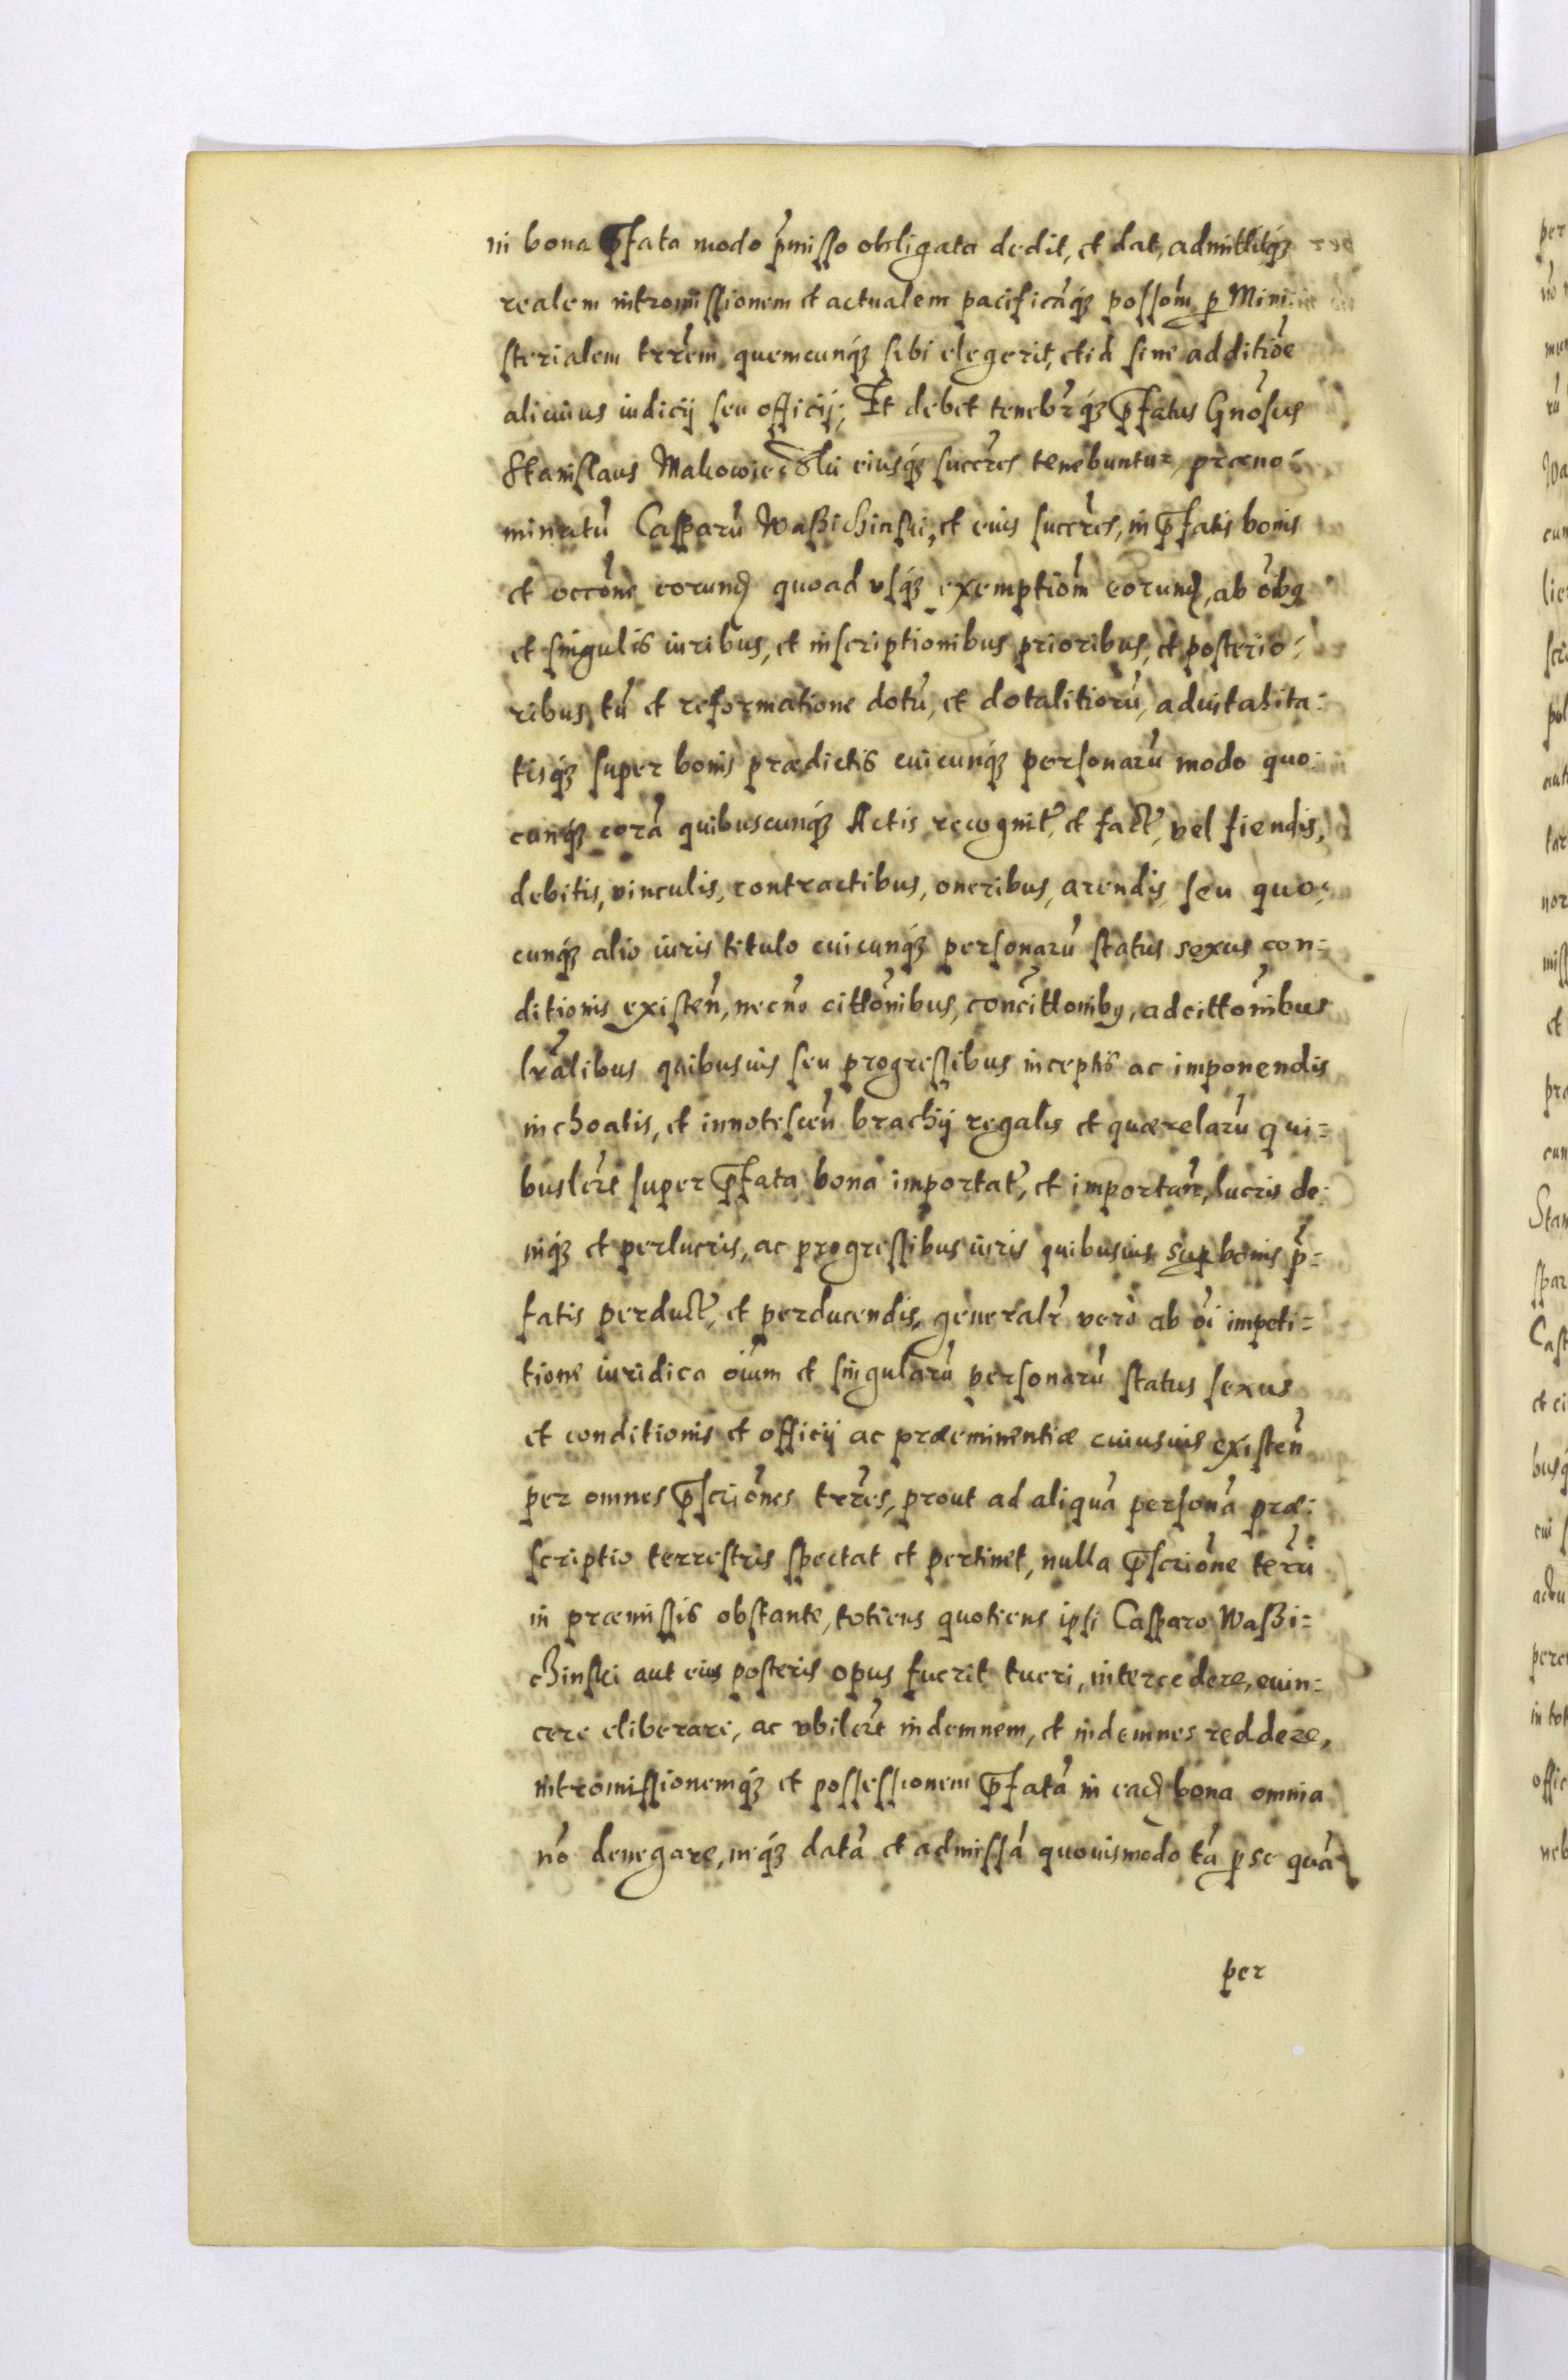 in bona p̄fata modo p̄misso obligata dedit, et dat, admittitq́ȝ
realem intromissionem et actualem pacificãq́ȝ possom̃ ꝑ Mini:
sterialem trr̃em quemcunq́ȝ sibi elegerit, et id sine additiõe
alicuius iudicij seu officij; Et debet tenebr̃q́ȝ p̄fatus Gnõsus
Stanislaus Makowieczki eiusq́ȝ succr̃es tenebuntur, præno:
minatũ Casparũ Waßichinski, et eius succr̃es, in p̄fatis bonis
et occõne eorund̃ quoad vsq́ȝ exemptiom̃ eorund̃, ab õbꝯ
et singulis iuribus, et inscriptionibus prioribus, et posterio:
ribus, tũ et reformatione dotũ, et dotalitiorũ, aduitalita:
tisq́ȝ super bonis prædictis cuicunq́ȝ personarũ modo quo:
cunq́ȝ corã quibuscunq́ȝ Actis recognit̃, et fact̃, vel fiendis,
debitis, vinculis, contractibus, oneribus, arendis, seu quo:
cunq́ȝ alio iuris titulo cuicunq́ȝ personarũ status sexus con=
ditionis existeñ, necño cittõnibus, concĩttonibꝯ, adcittõnibus
lrãlibus quibusuis seu progressibus inceptis ac imponendis
inchoatis, et innotesceñ brachij regalis et quærelarũ qui=
busler̃t super p̄fata bona importat̃, et importañ, lucris de:
niq́ȝ et perlucris, ac progressibus iuris quibusuis suꝑ bonis p̃=
fatis perduct̃, et perducendis, generalr̃ verò ab õi impeti=
tione iuridica õium et singularũ personarũ status sexus
et conditionis et officij ac præeminentiæ cuiusuis existeñ
per omnes p̄scriõnes trr̃es, prout ad aliquã personã præ:
scriptio terrestris spectat et pertinet, nulla p̄scriõne terr̃ũ
in præmissis obstante, totiens quotiens ipsi Casparo Waßi=
chinski aut eius posteris opus fuerit tueri, intercedere, euin=
cere eliberare, ac vbiler̃t indemnem, et indemnes reddere,
intromissionemq́ȝ et possessionem p̄fatã in ead̃ bona omnia
nõ denegare, neq́ȝ datã et admissã quouismodo tã ꝑ se quã
per